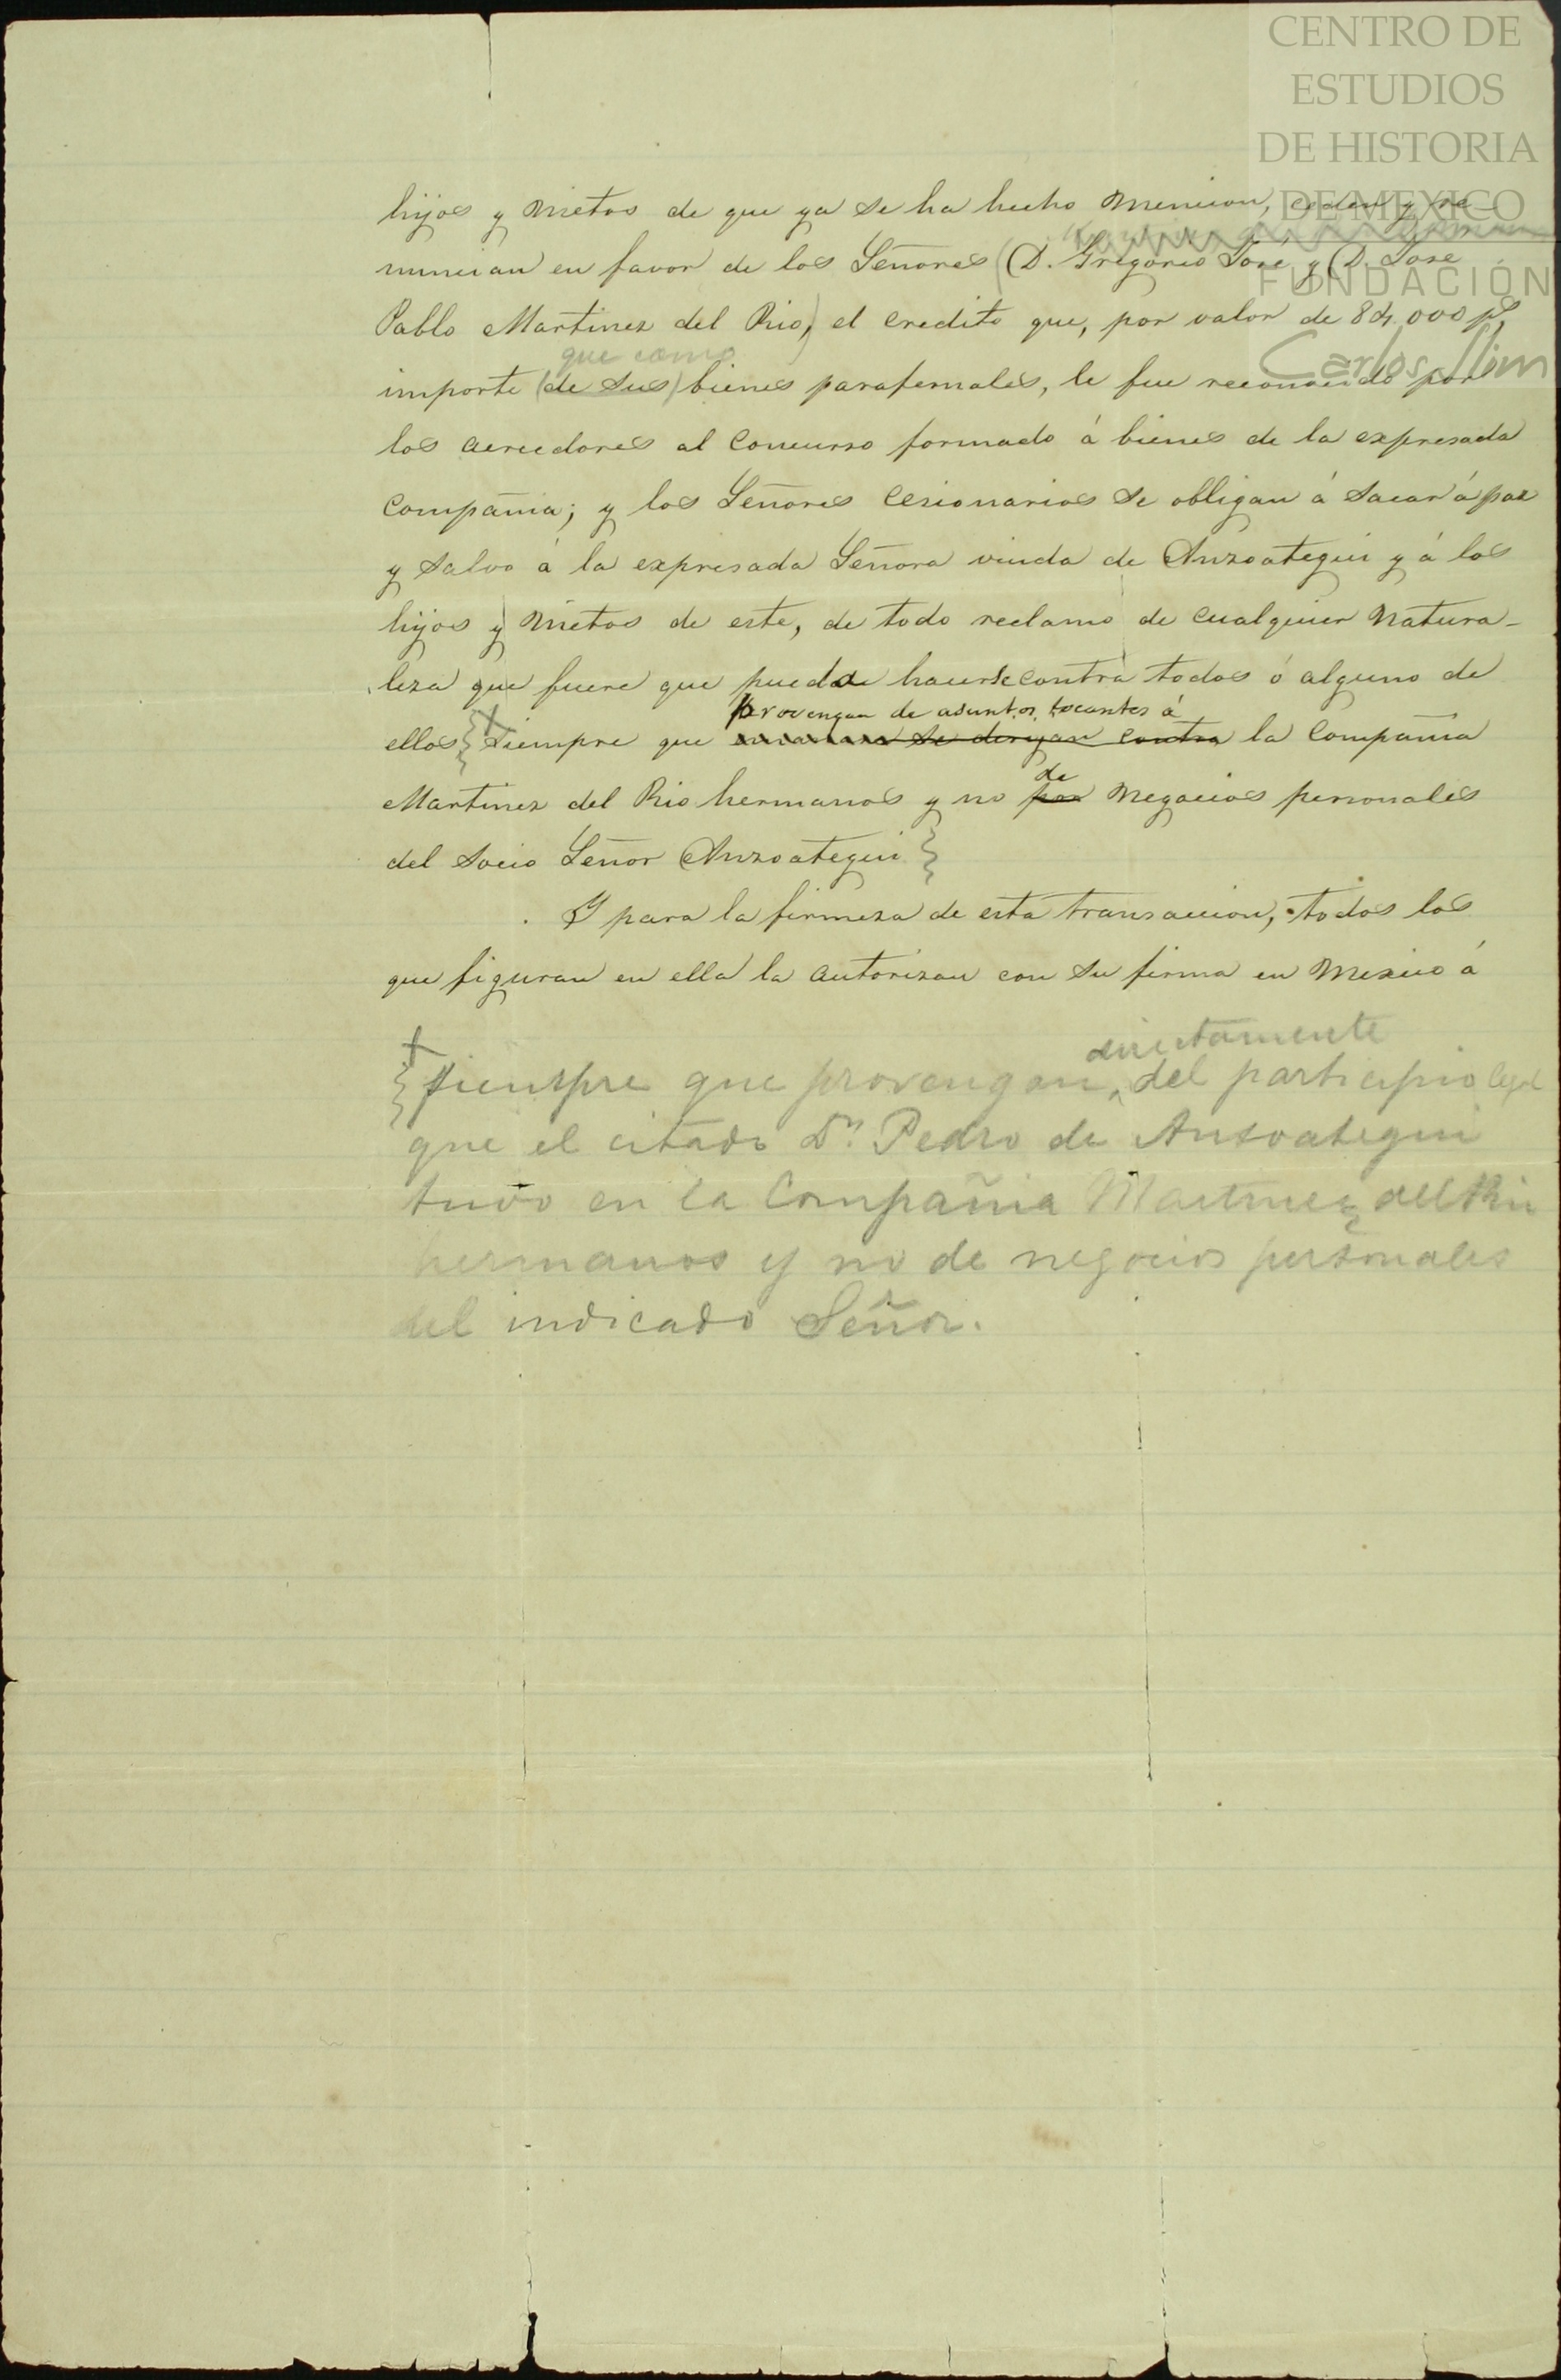 CENTRO DE
ESTUDIOS
DE HISTORIA
DE MEXICO
FUNDACIÓN
Carlos Slim
hijos y nietos de que ya se ha hecho mencion, ceden y re-
nuncian en favor de los Señores (D. Gregorio José y (D. José
Pablo Martinez del Rio) el credito que, por valor de 84,000 ps,
que como
importe (de sus) bienes parafernales, le fue reconocido por
los acreedores al Concurso formado á bienes de la expresada
Compañia; y los Señores Cesionarios se obligan á sacar á paz
y salvo á la expresada Señora viuda de Anzoategui y á los
hijos y nietos de este, de todo reclamo de cualquier natura-
leza que fuere que pueda hacerse contra todos ó alguno de
provengan de asuntos tocantes á
ellos { + siempre que se dirijan contra la Compañia
de
Martinez del Rio hermanos y no por negocios personales
del Socio Señor Anzoategui }
Y para la firmeza de esta transaccion, todos los
que figuran en ella la autorizan con su firma en Mexico á
+
directamente
{ siempre que provengan, del participio legal
que el citado Dn. Pedro de Ansoategui
tuvo en la Compañia Martinez del Rio
hermanos y no de negocios personales
del indicado Señor.